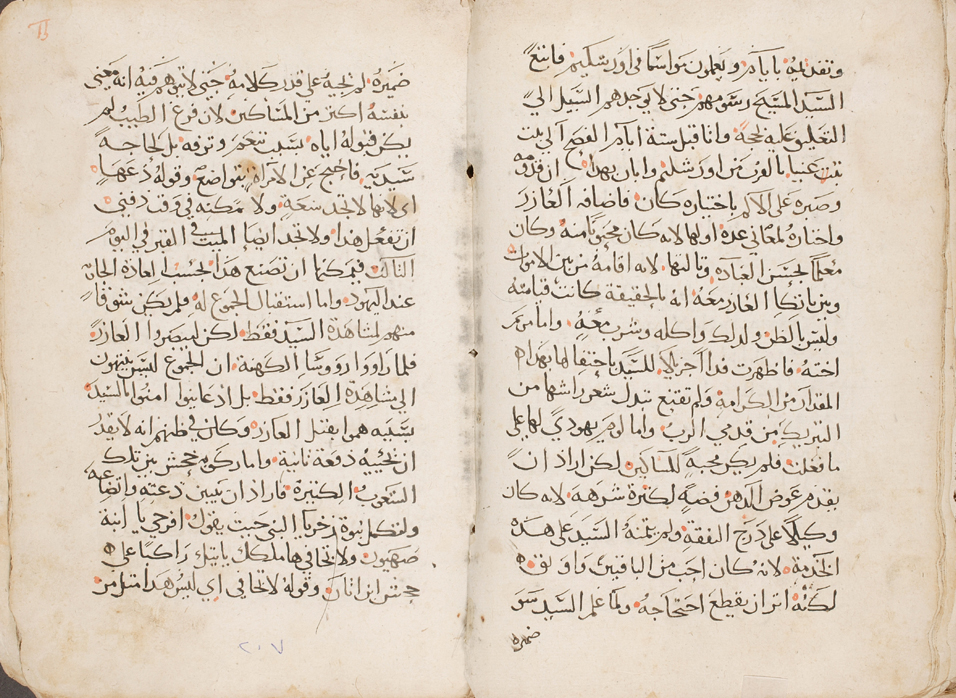 وتقدمه باياذر ويعلمون مواسمًا في اورشليم فاتبع
السيد المسيح رسومهم حتى لا يوجدهم السبيل الى
التغلب عليه بحجة وانا قبل ستة ايام الفصح الى بيت
بيت عنيا بالقرب من اورشليم وابان بهذا ان قدومه
وصبره على الالم باختياره كان فاضافه العازر
واختاره لمعاني عده اولها لانه كان محبو نامنه وكان
معلمًا لحسن العباده وثالثها لانه اقامه من بين الاموات
وبين باتكا العازر معه انه بالحقيقة كانت قيامته
وليس بالظن ولذلك واكله وشرب معه واما مريم
اخته فاظهرت فدا جزيلا للسيد باحتفالها بهذا
المقدار من الكرامة ولم تقنع تبدل شعر راسها من
التبريك من قدمي الرب واما لوم يهودي لها على
ما فعلت فلم يكن محبه للمساكين لكن اراد ان
يقدم عوض الدهن فضه لكثرة شرهه لانه كان
وكيلا على درج النفقة ولم يمنه السيد على هذه
الخدمة لانه كان احب من الباقين واوثق
لكنه اثر ان يقطع احتجاجه ولما علم السيد سو
ضميره
ضميره لم يجبه على قدر كلامه حتى لا يتوهم فيه انه يعتني
بنفسه اكثر من المساكين لان فرع الطيب لم
يكن قبوله اياه بسبب تنعم وترفه بل لحاجة
شديده فاحتج عن الامراه بتواضع وقوله دعها
اي لانها لا تجد سعة ولا يمكنه في وقت دفني
ان تفعل هذا ولا تجد ايضا الميت في القبر في اليوم
الثالث فيمكنها ان تصنع هذا بحسب العادة الجارية
عند اليهود واما استقبال الجموع له فلم يكن شوقًا
منهم لمشاهدة السيد فقط لكن ليبصروا العازر
فلما راوا روسا الكهنة ان الجموع ليس ينتهون
الى مشاهدة العازر فقط بل اذ عاينوا امنوا بالسيد
بسببه هموا بقتل العازر وكان في ظنهم انه لا يقدر
ان يحييه دفعة ثانية واما ركوبه جحش بين تلك
الشعوب الكثيرة فاراد ان يبين دعته واتضاعه
ولتكمل نبوة زخريا النبي حيث يقول افرحي يا ابنة
صهيون ولا تخافي هاملكك ياتيك راكبًا على
جحش ابن اتان وقوله لا تخافي اي ليس هذا مثل من
٢٠٧